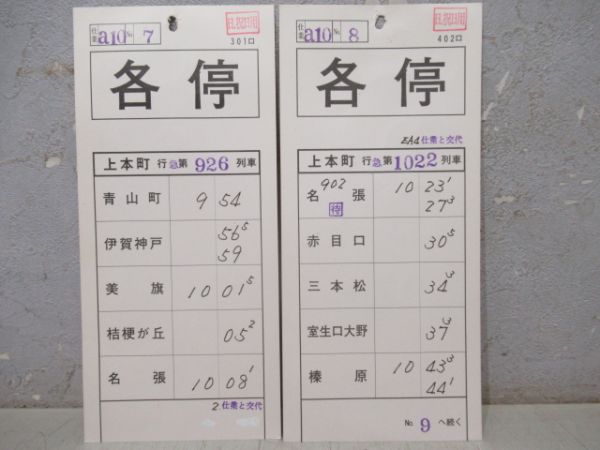 仕業 a10 No. 7
日、祝日用
301ロ
各停
上本町 行 急 第 926 列車
青山町 9 54
伊賀神戸 56⁵
59
美旗 10 01⁵
桔梗が丘 05²
名張 10 08¹
2.仕業と交代
仕業 a10 No. 8
日、祝日用
402ロ
各停
EA4 仕業と交代
上本町 行 急 第 1022 列車
名張 902 待 10 23¹
27³
赤目口 30⁵
三本松 34³
室生口大野 37³
榛原 10 43³
44¹
No. 9 へ続く